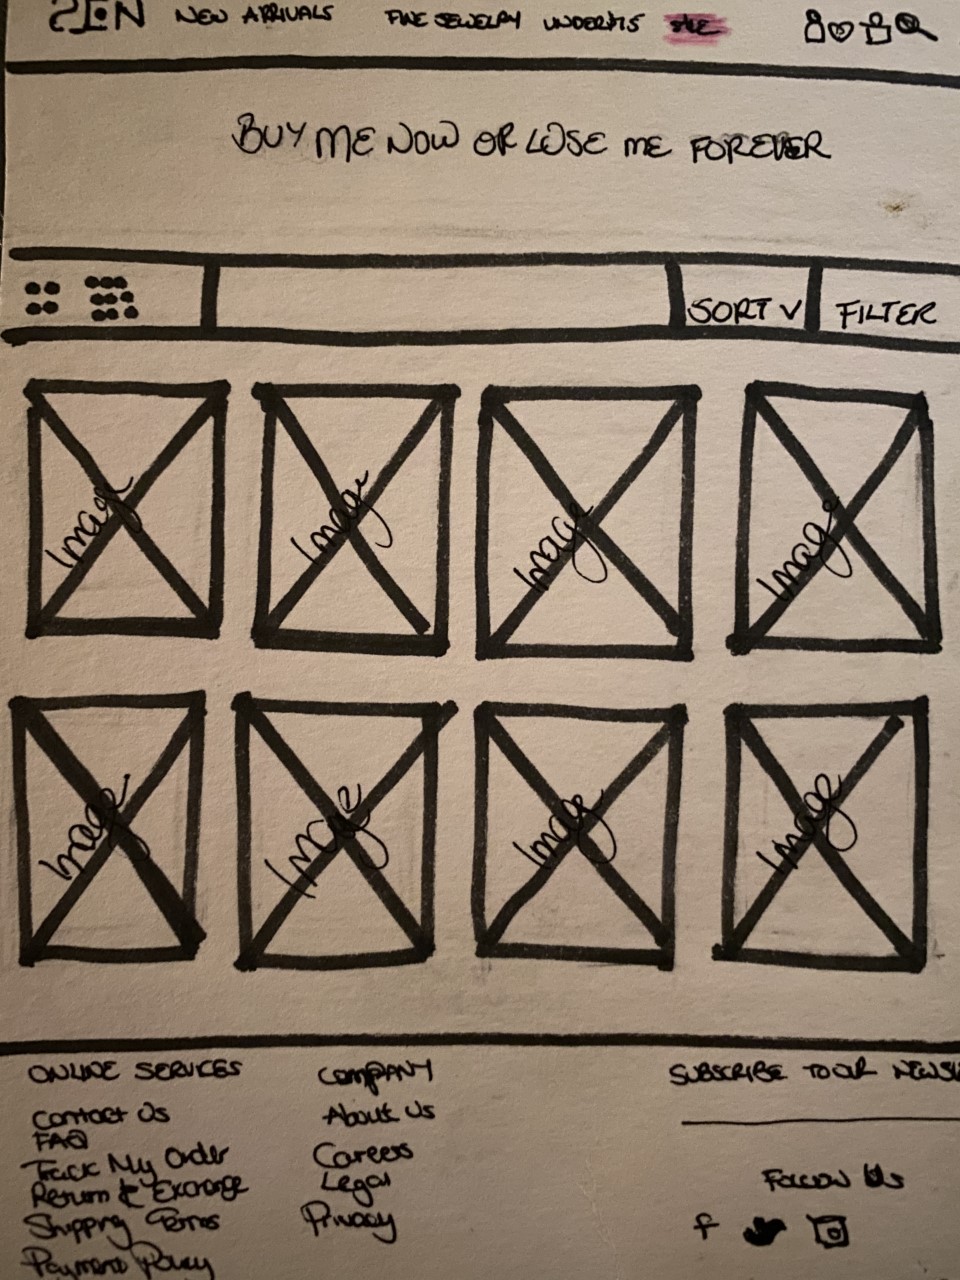 ZEN NEW ARRIVALS FINE JEWELRY UNDER 175 sale
BUY ME NOW OR LOSE ME FOREVER
SORT FILTER
Image Image Image Image
Image Image Image Image
ONLINE SERVICES
Contact Us
FAQ
Track My Order
Return & Exchange
Shipping Terms
Payment Policy
COMPANY
About Us
Careers
Legal
Privacy
SUBSCRIBE TO OUR NEWSL
Follow Us